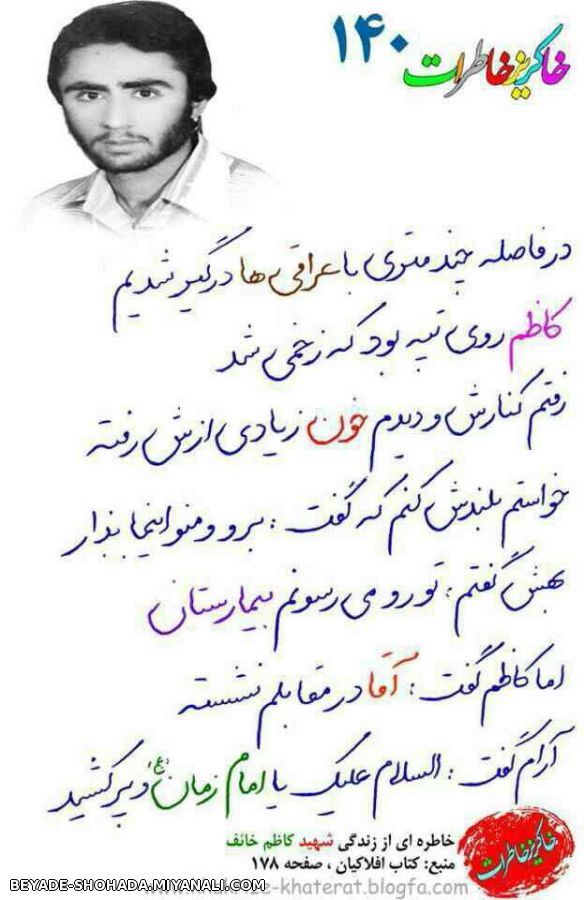 خاکریز خاطرات ۱۴۰
در فاصله چند متری با عراقی ها درگیر شدیم
کاظم روی تپه بود که زخمی شد
رفتم کنارش و دیدم خون زیادی ازش رفته
خواستم بلندش کنم که گفت: برو و منو اینجا بذار
بهش گفتم: تو رو می رسونم بیمارستان
اما کاظم گفت: آقا در مقابلم نشسته
آرام گفت: السلام علیک یا امام زمان(عج) و پر کشید
خاطره ای از زندگی شهید کاظم خائف
منبع: کتاب افلاکیان ، صفحه ۱۷۸
خاکریز خاطرات
BEYADE-SHOHADA.MIYANALI.COM
-khaterat.blogfa.com